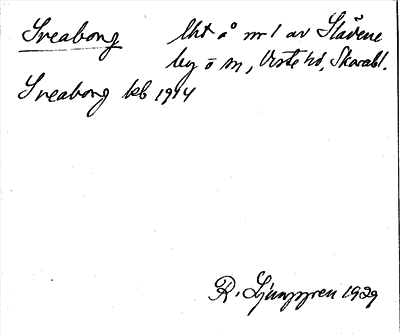 Sveaborg lht å nr 1 av Stavene
by ö m, Viste hd, Skarabl.
Sveaborg kb 1914
R. Ljunggren 1929